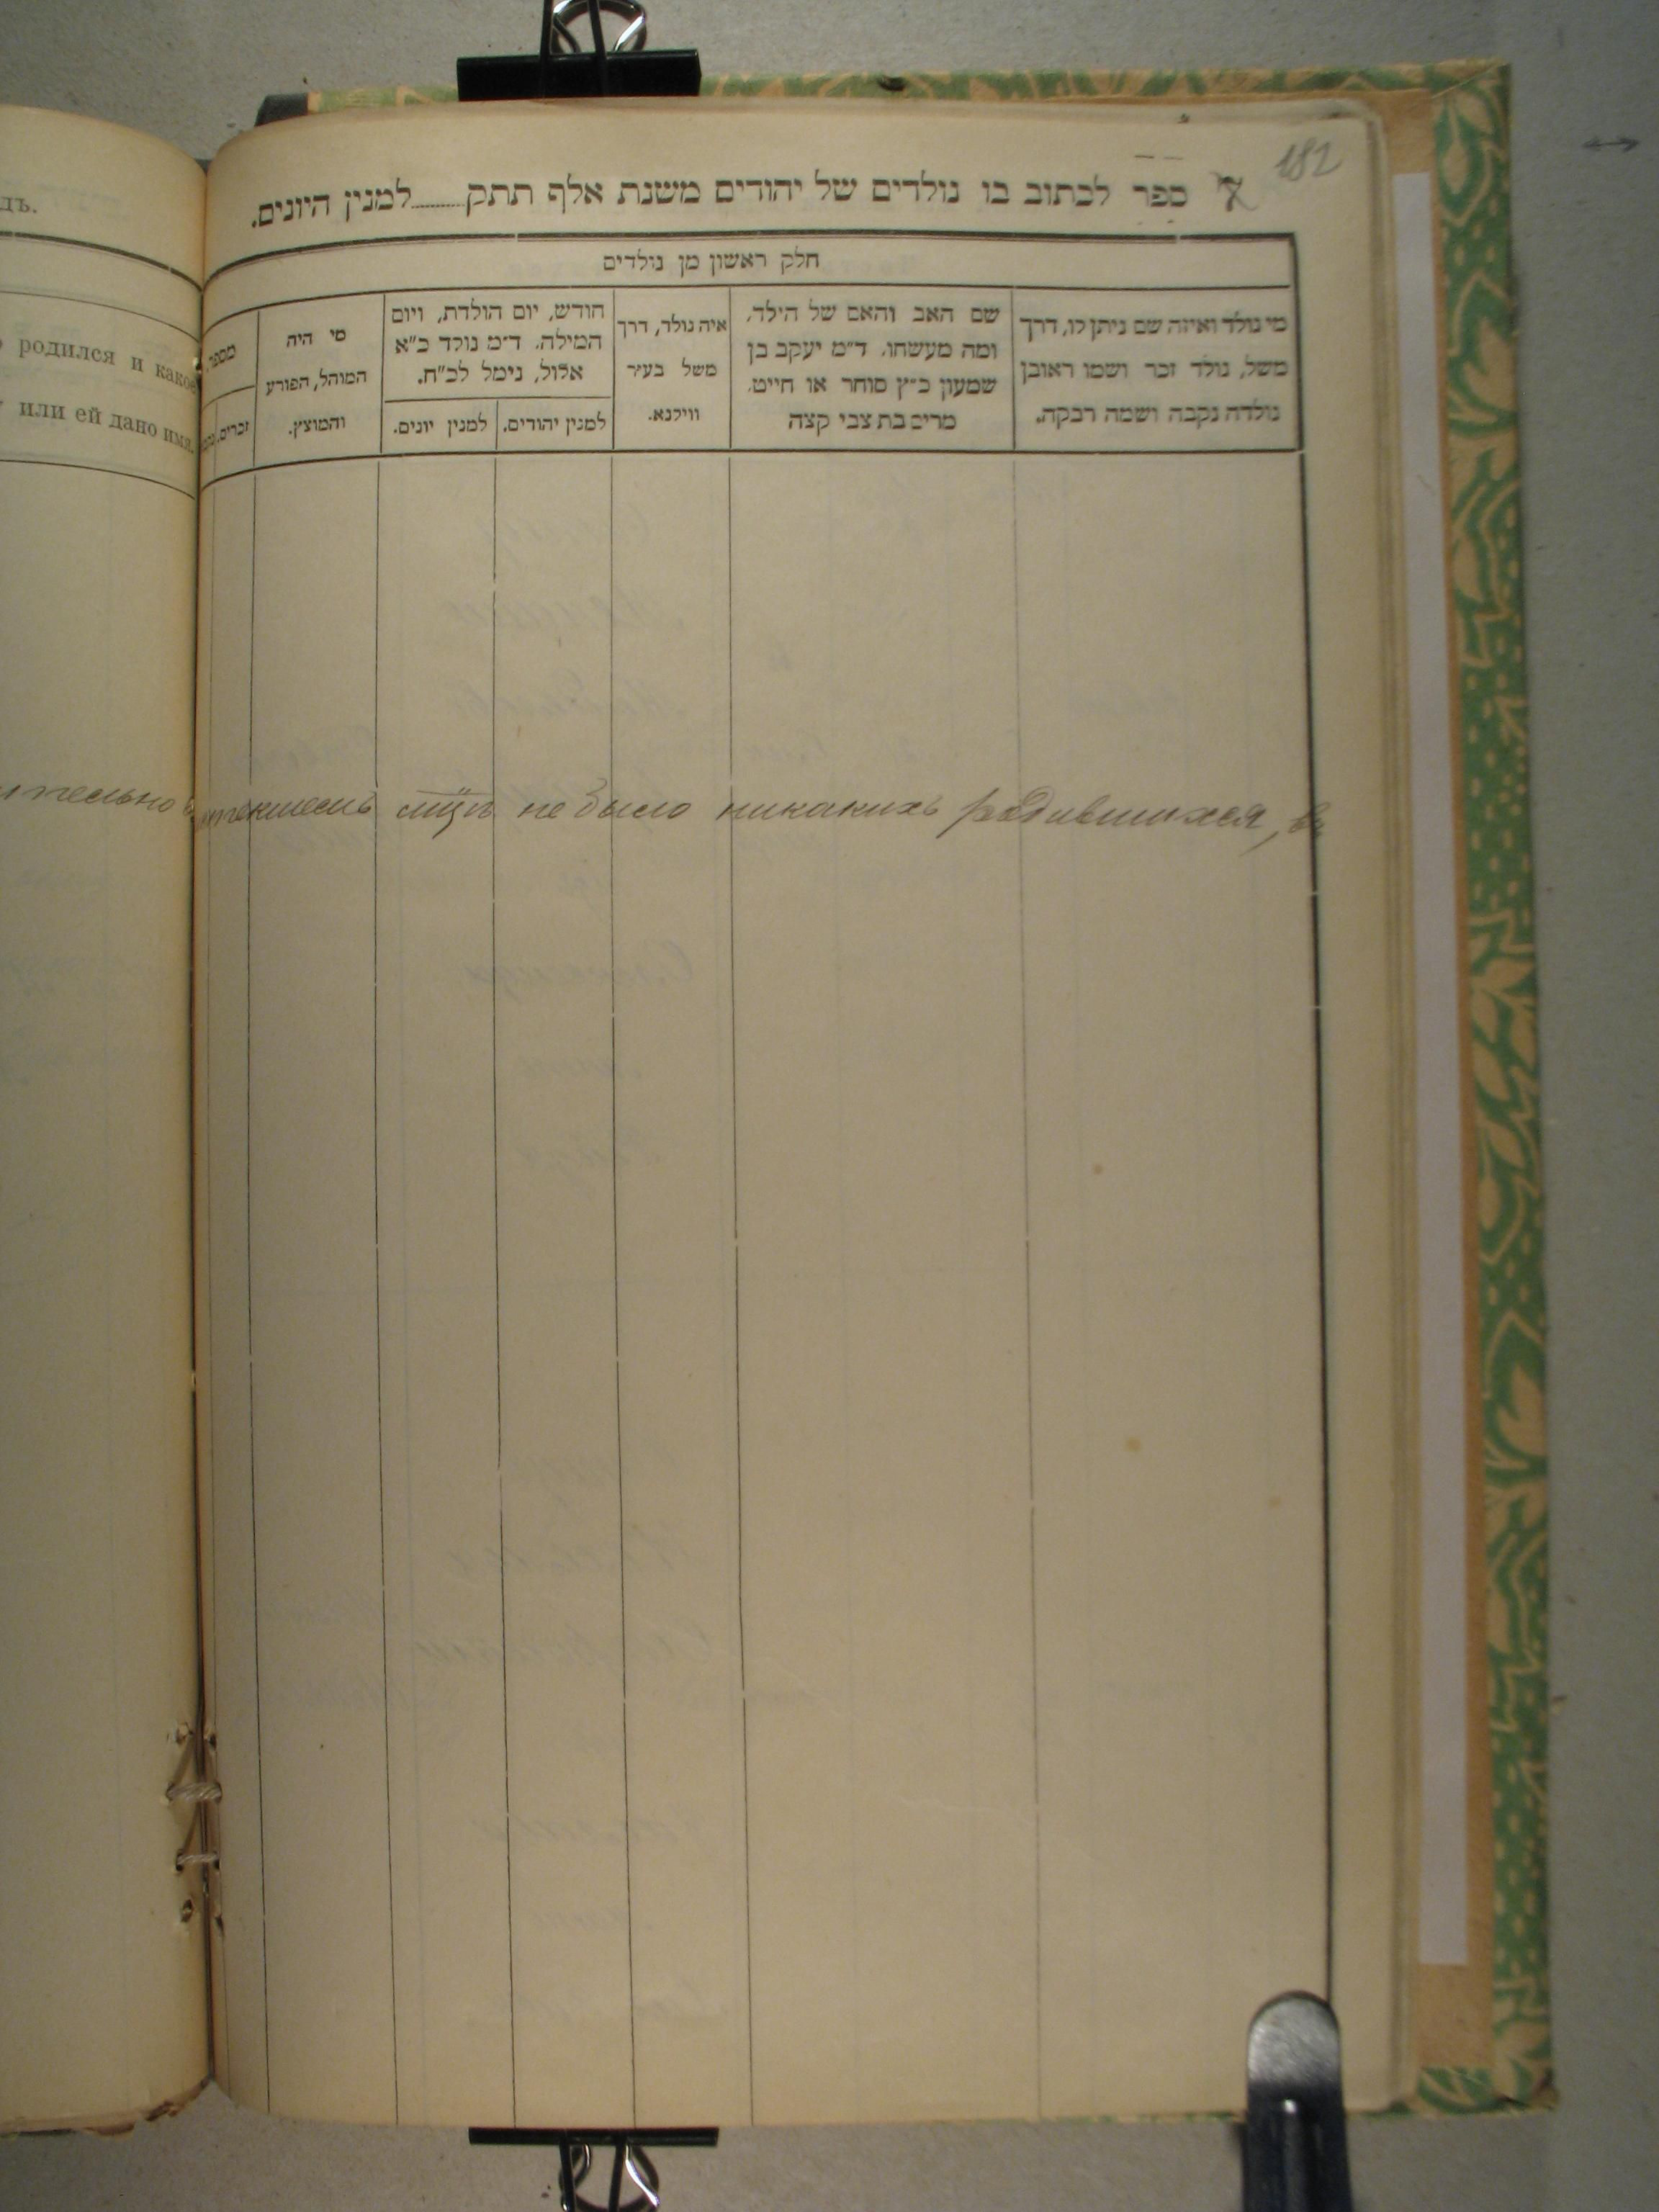 182
א׳ ספר לכתוב בו נולדים של יהודים משנת אלף תתק........למנין היונים.
חלק ראשון מן נולדים
מי נולד ואיזה שם ניתן לו, דרך
משל, נולד זכר ושמו ראובן
נולדה נקבה ושמה רבקה.
שם האב והאם של הילד,
ומה מעשהו. ד״מ יעקב בן
שמעון כ״ץ סוחר או חייט.
מרים בת צבי קצה
איה נולד, דרך
משל בעיר
ווילנא.
חודש, יום הולדת, ויום
המילה. ד״מ נולד כ״א
אלול, נימל לכ״ח.
למנין יהודים.
למנין יונים.
מי היה
המוהל, הפורע
והמוצץ.
מספר.
זכרים.
дъ.
родился и какое
или ей дано имя.
не было никакихъ родившихся,